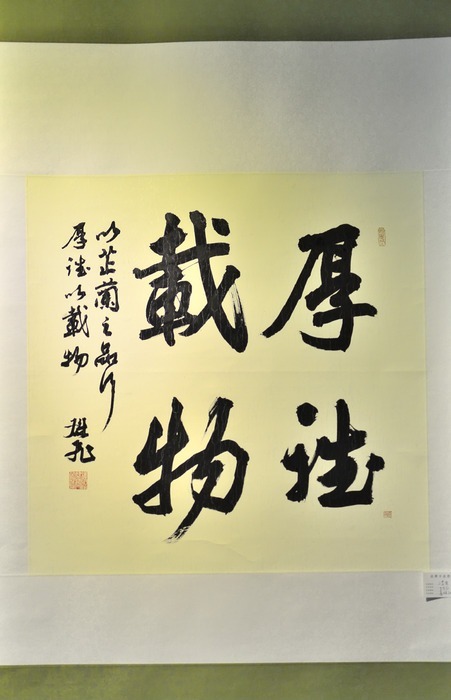 厚德
載物
以芷蘭之品行
厚德以載物